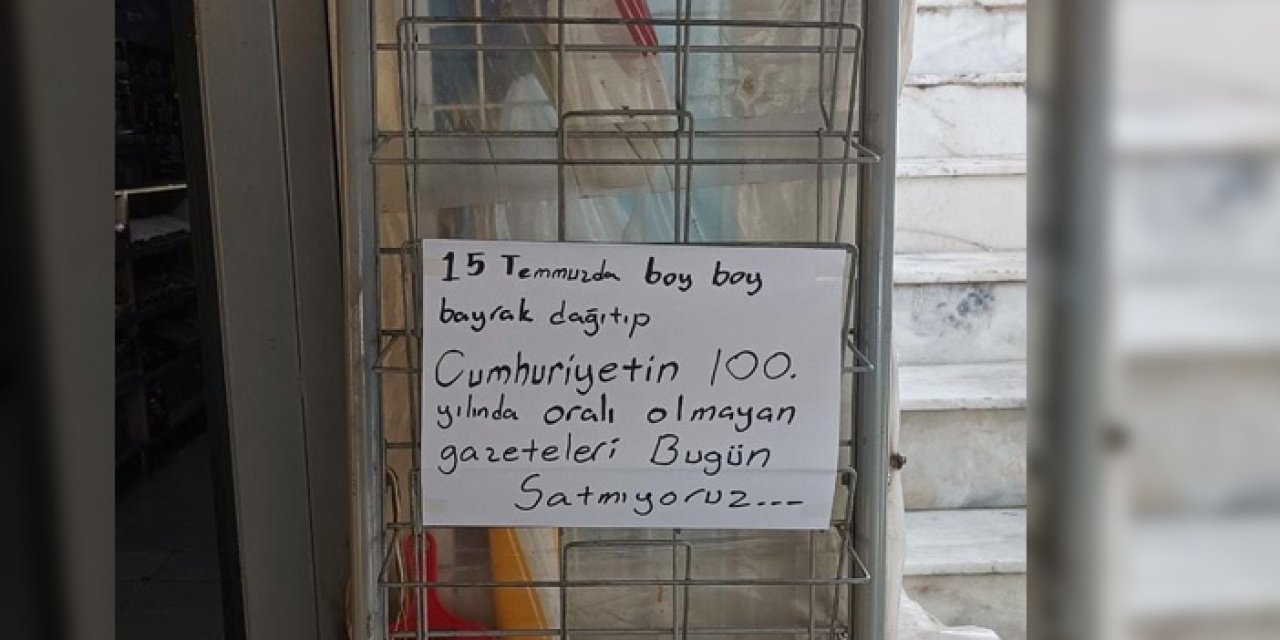 15 Temmuzda boy boy
bayrak dağıtıp
Cumhuriyetin 100.
yılında oralı olmayan
gazeteleri Bugün
Satmıyoruz---